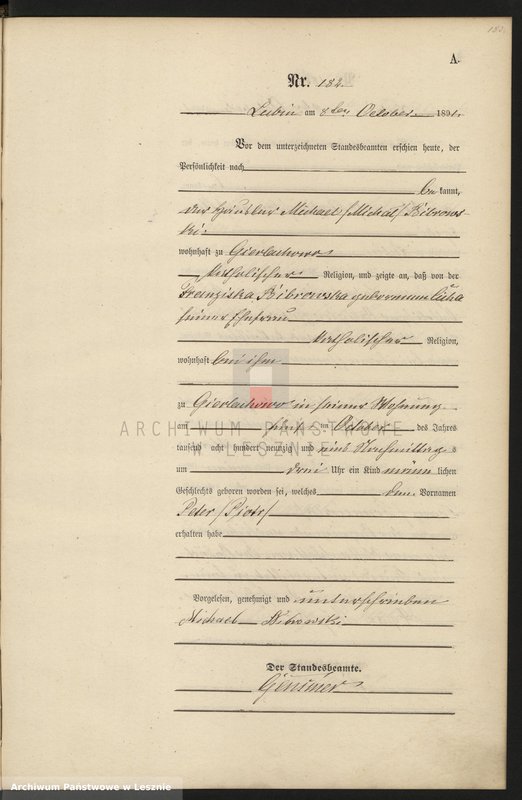 183.
A.
Nr. 182.
Lubin am 8ten October 1891.
Vor dem unterzeichneten Standesbeamten erschien heute, der
Persönlichkeit nach
be kannt,
der Häusler Michael /Michal/ Bibrows-
ki
wohnhaft zu Gierlachowo
katholischer Religion, und zeigte an, daß von der
Franziska Bibrowska geborenen
seiner Ehefrau
katholischer Religion,
wohnhaft bei ihm
zu Gierlachowo in seiner Wohnung
am im October des Jahres
tausend acht hundert neunzig und eins Nachmittag s
um drei Uhr ein Kind männ lichen
Geschlechts geboren worden sei, welches den Vornamen
Peter /Piotr/
erhalten habe
Vorgelesen, genehmigt und unterschrieben
Michael Bibrowski
Der Standesbeamte.
ARCHIWUM PAŃSTWOWE
W LESZNIE
Archiwum Państwowe w Lesznie